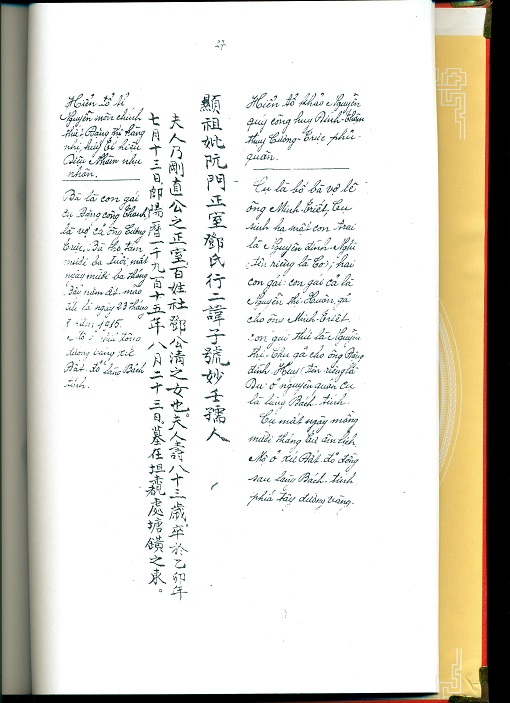 27
Hiển tổ khảo Nguyễn
quý công huy Đình
thụy Cương Trực phủ
quân.
Cụ là bố bà vợ lẽ
ông Minh Triết. Cụ
sinh hạ một con trai
là Nguyễn đình Nghi
(tên riêng là Cò); hai
con gái: con gái cả là
Nguyễn thị Xuân, gả
cho ông Minh Triết.
con gái thứ là Nguyễn
thị Thu gả cho ông Đặng
đình (tên riêng là
Dư ở nguyên quán cụ
là làng Bách tính
Cụ mất ngày mồng
mười tháng âm lịch
Mộ ở xứ Đất đỏ đồng
sau làng Bách tính
phía tây đường vàng.
顯祖妣阮門正室鄧氏行二諱子號妙壬孺人
夫人乃剛直公之正室百姓社鄧公清之女也。夫人壽八十三歲。卒於乙卯年
七月十三日即陽曆一千九百十五年八月二十三日。墓在坦處塘鐄之東。
Hiển tổ tỉ
Nguyễn môn chính
thất Đặng thị hàng
nhị, húy Tí hiệu
Diệu Nhâm nhụ
nhân.
Bà là con gái
cụ Đặng công Thanh
là vợ cả ông Cương
Trực. Bà thọ tám
mươi ba tuổi, mất
ngày mười ba tháng
bảy năm ất mão
tức là ngày 23 tháng
8 năm 1915.
Mộ ở phía đông
đường vàng xứ
Đất đỏ làng Bách
tính.